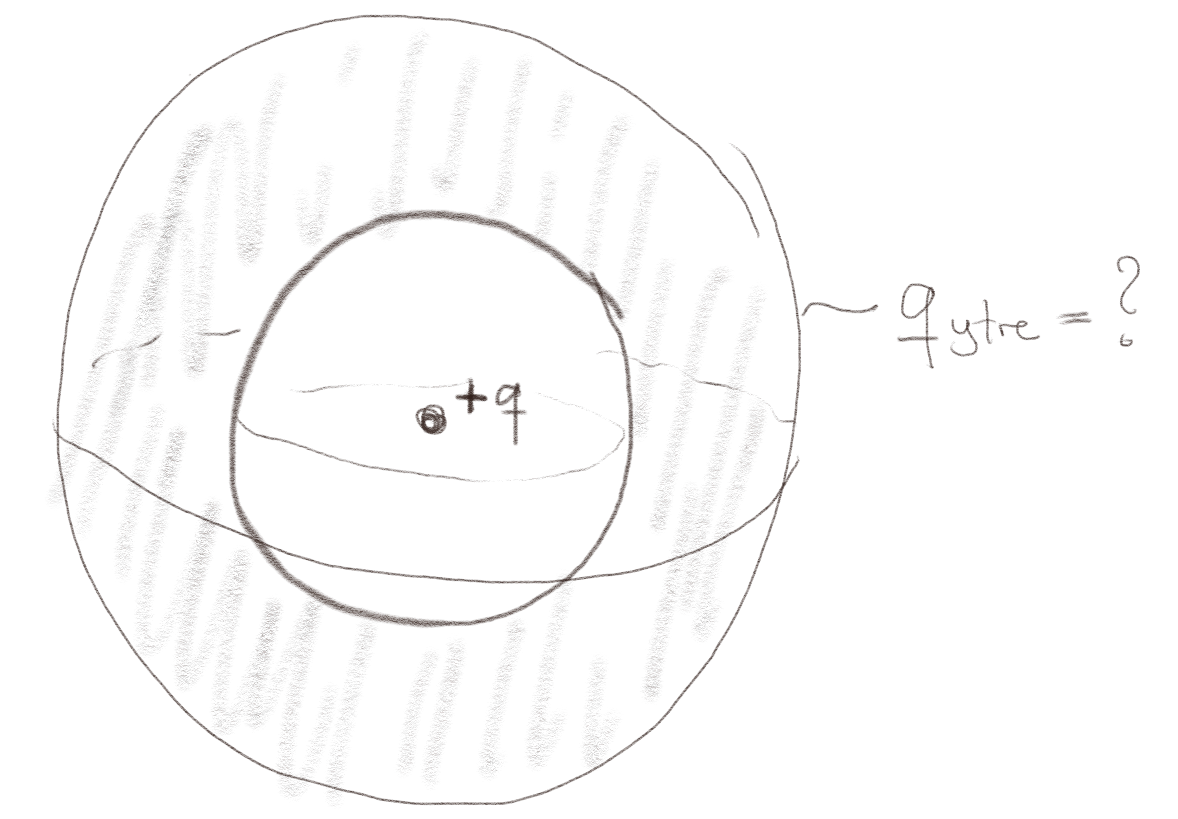 +q
q ytre = ?